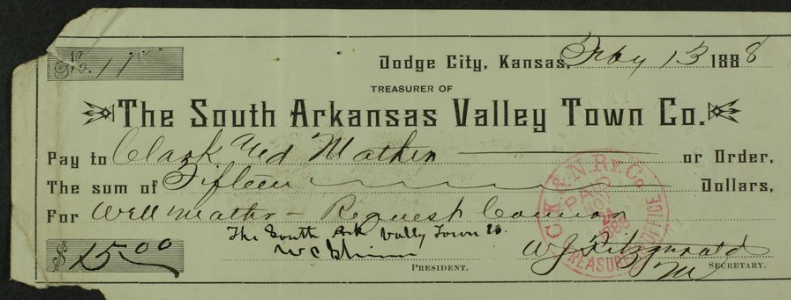 No. 11
Dodge City, Kansas, Feby 13 1888
TREASURER OF
The South Arkansas Valley Town Co.
Pay to Clark and Mather or Order,
The sum of Fifteen Dollars,
For Well matter - Request Cannon
The South Ark Valley Town Co.
$15.00
PRESIDENT.
W J Fitzgerald
SECRETARY.
C. K. & N. Ry. Co.
TREASURER OFFICE